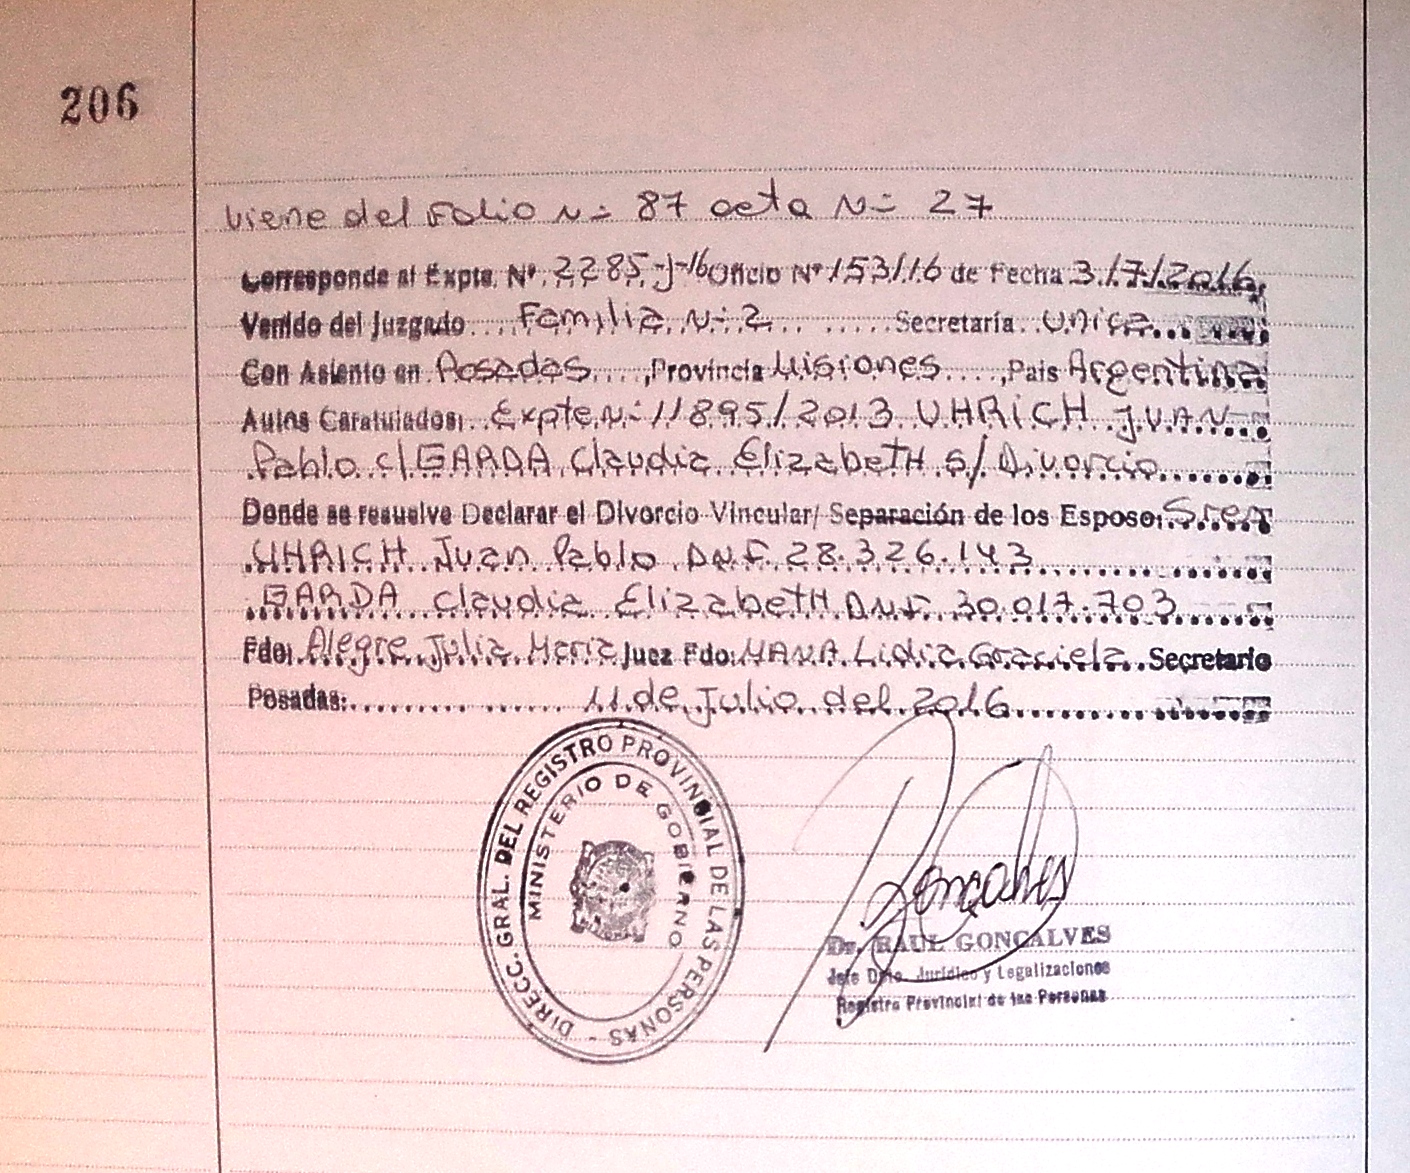 206
viene del Folio N= 87 acta N= 27
Corresponde al Expte. Nº 2285-J-16 Oficio Nº 153/16 de Fecha 3/7/2016
Venido del Juzgado Familia N=2 Secretaría Unica
Con Asiento en Posadas, Provincia Misiones, Pais Argentina
Autos Caratulados: Expte N=11895/2013 UHRICH JUAN
Pablo c/GARDA Claudia ElizabetH s/Divorcio
Donde se resuelve Declarar el Divorcio Vincular/ Separación de los Esposo: Sres
UHRICH Juan Pablo DNI 28.326.143
GARDA Claudia ElizabetH DNI 30.017.703
Fdo: Alegre Julia Maria Juez Fdo: Lidia Graciela Secretario
Posadas: 11 de Julio del 2016
DIRECC. GRAL. DEL REGISTRO PROVINCIAL DE LAS PERSONAS -
MINISTERIO DE GOBIERNO
Gonçalves
Dr. RAUL GONCALVES
Jefe Dpto. Jurídico y Legalizaciones
Registro Provincial de las Personas